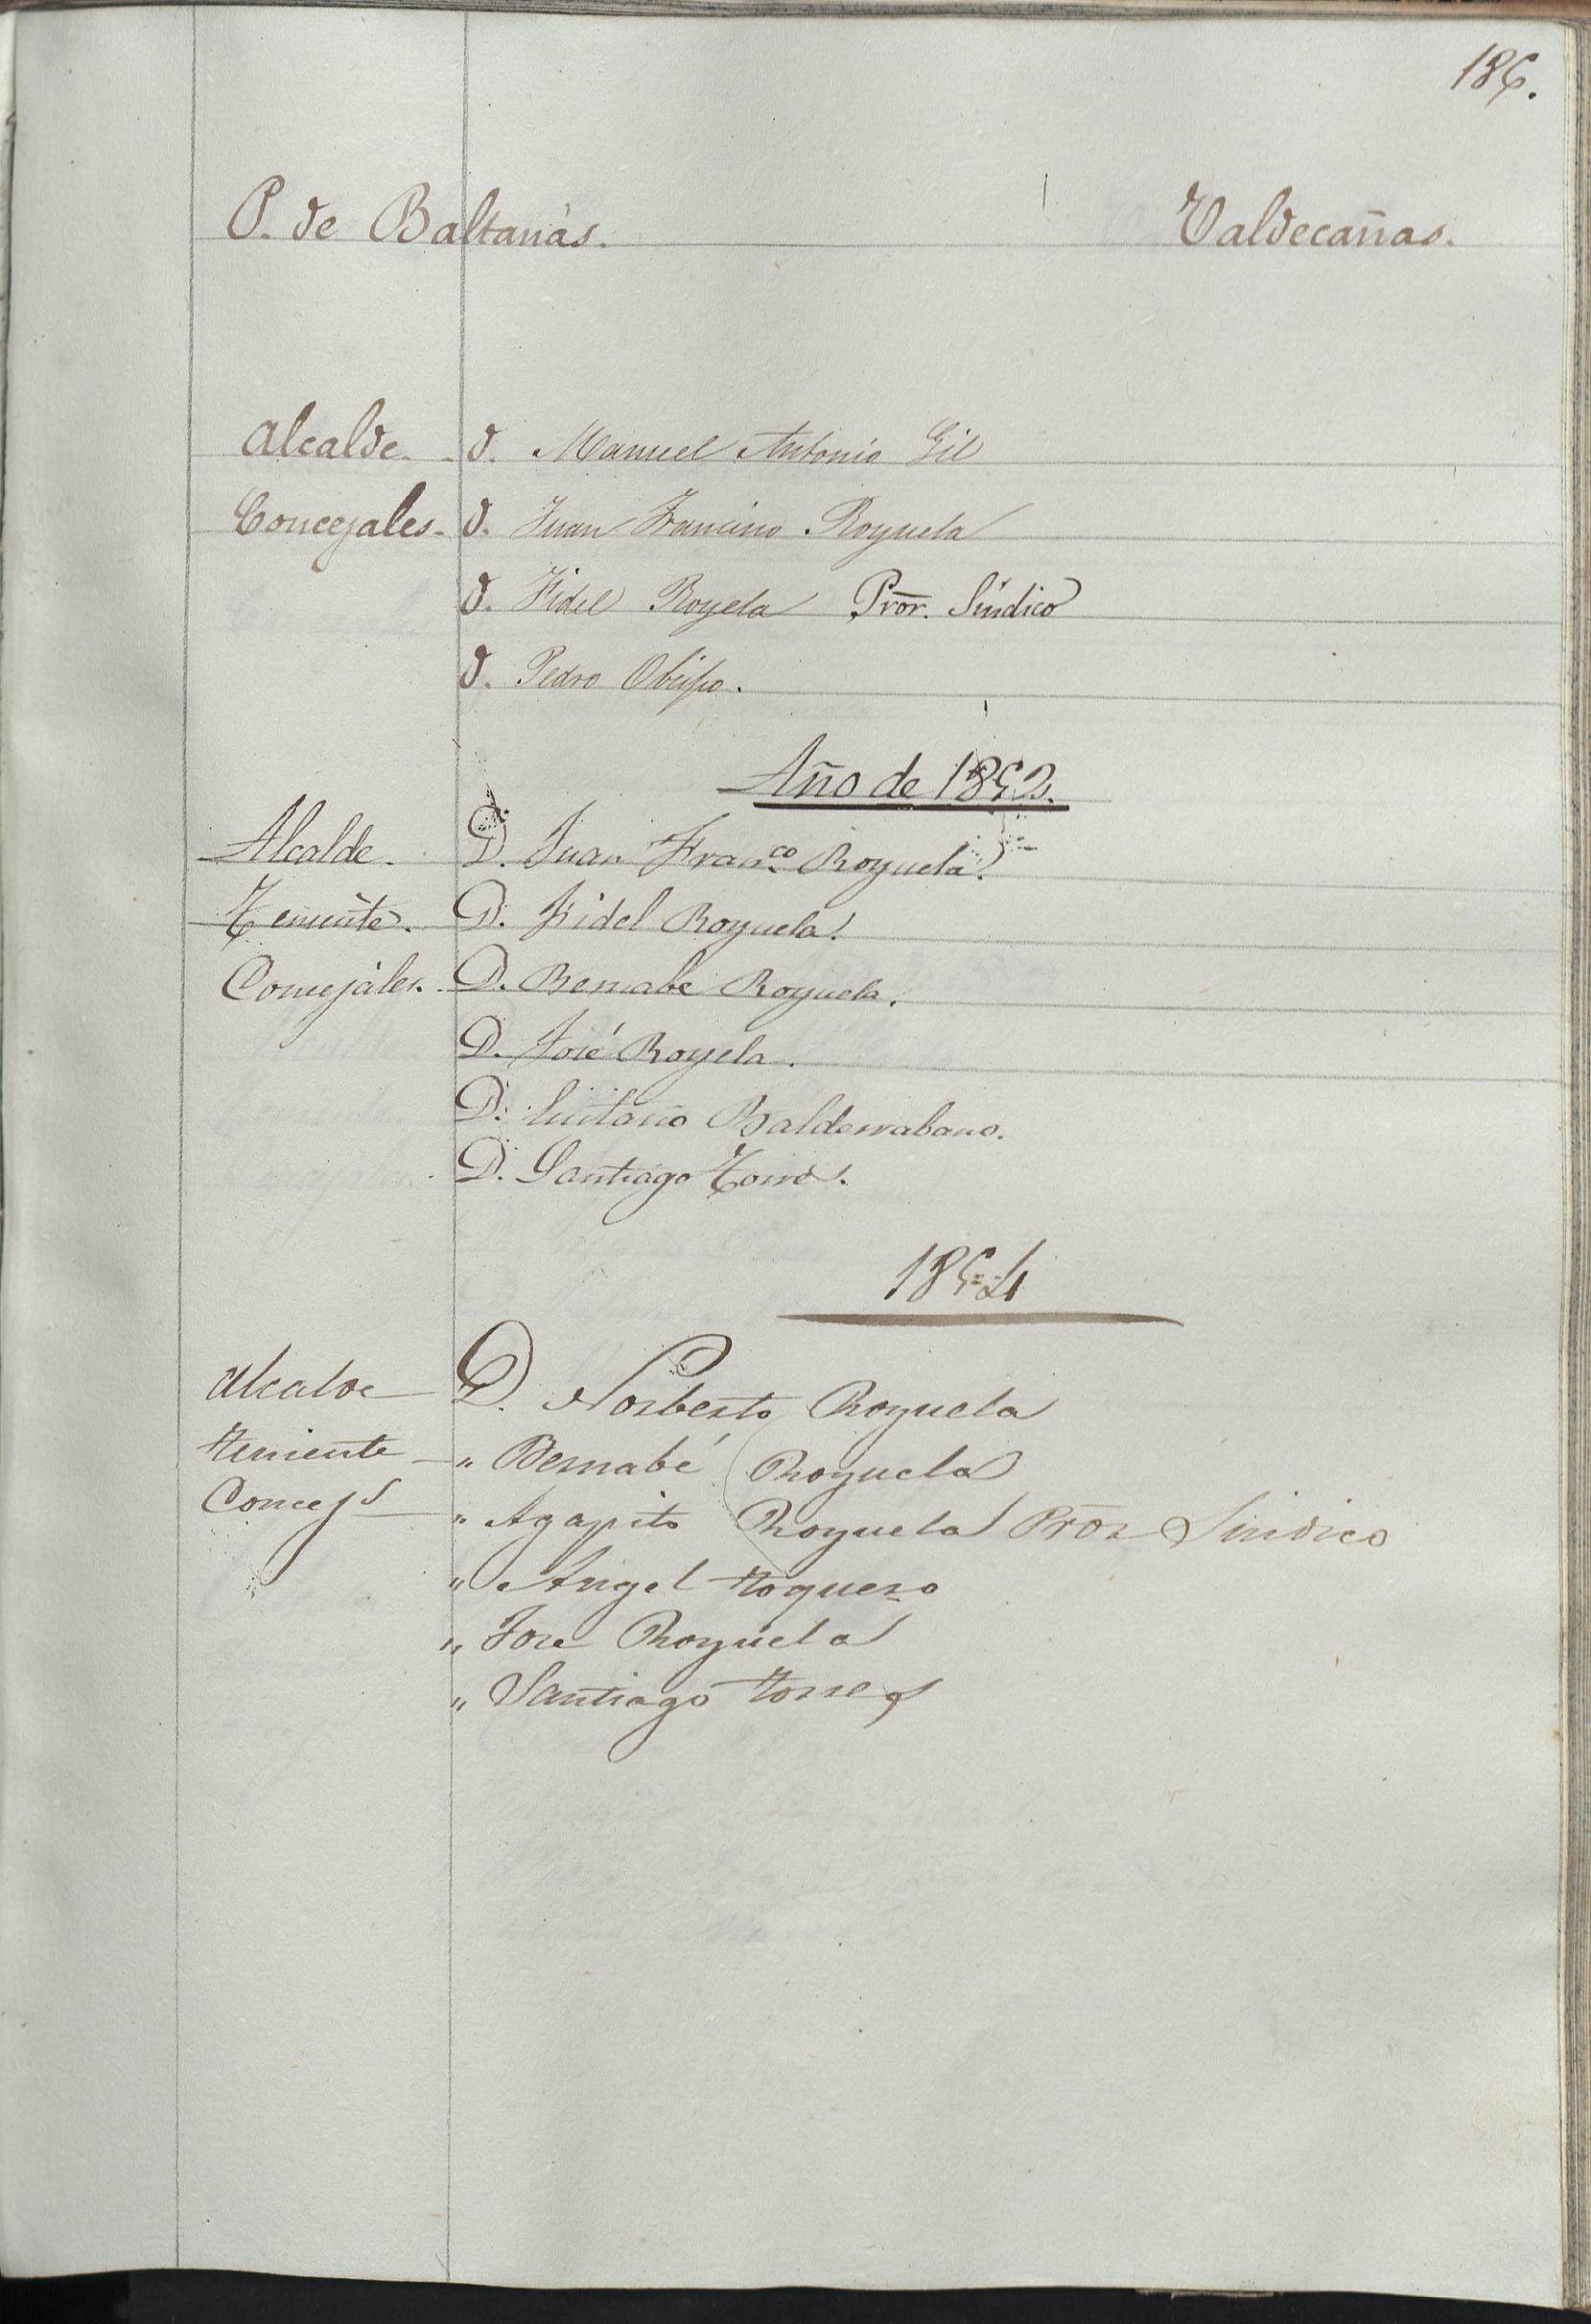 186.
P. de Baltanás. Valdecañas.
Alcalde - D. Manuel Antonio Gil
Concejales - D. Juan Francisco Royuela
D. Fidel Royela Pror. Síndico
D. Pedro Obispo.
Año de 1852.
Alcalde - D. Juan Franco Royuela.
Teniente. D. Fidel Royuela.
Concejáles. D. Bernabe Royuela.
D. José Royela.
D. Balderrabano.
D. Santiago Torres.
1854
Alcalde D. Norberto Royuela
teniente " Bernabé Royuela
Concejs " Agapito Royuela Pror Sindico
" Angel Noguero
" Jose Royuela
" Santiago torres